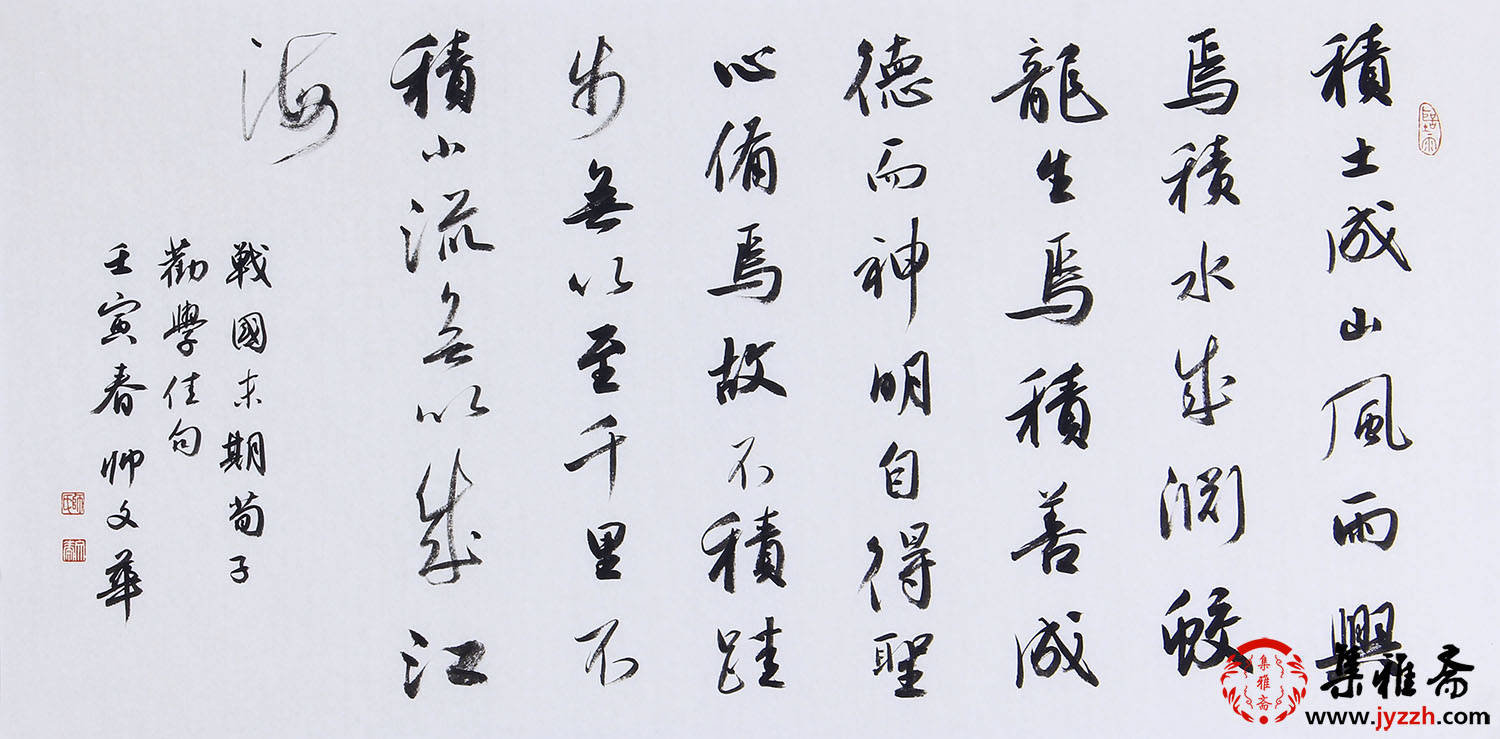 積土成山風雨興
焉積水成淵蛟
龍生焉積善成
德而神明自得聖
心備焉故不積跬
步無以至千里不
積小流無以成江
海
戰國末期荀子
勸學佳句
壬寅春帥文華
集雅斋
集雅斋
www.jyzzh.com